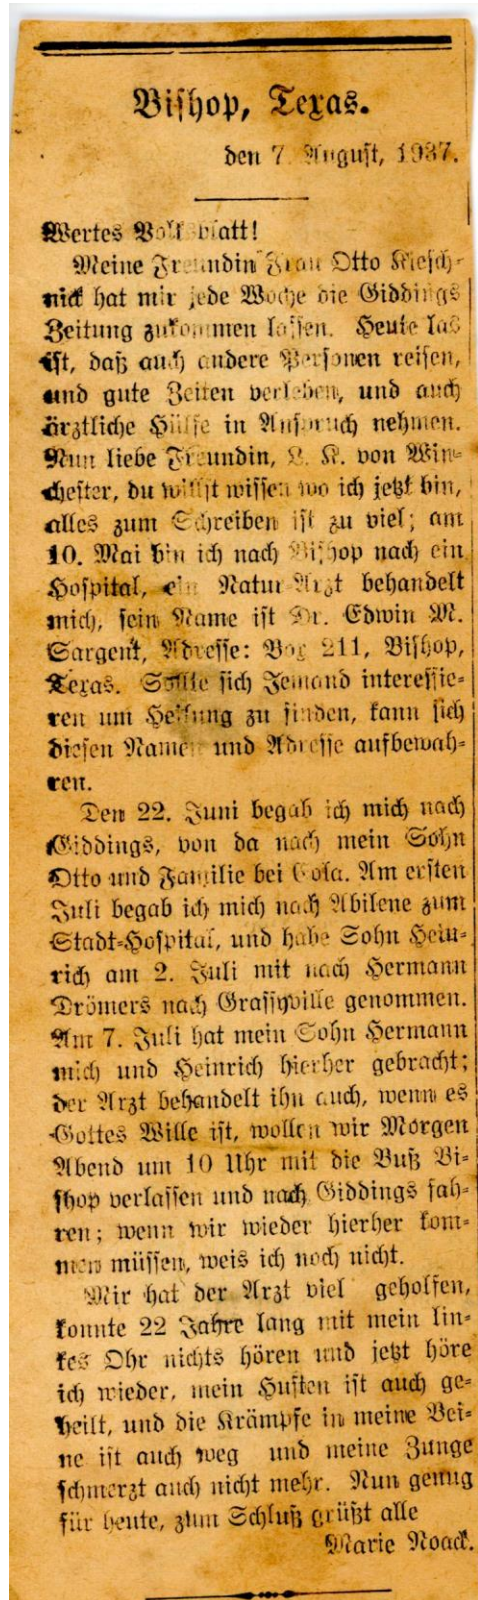 Bishop, Texas.
den 7. August, 1937.
Wertes Volksblatt!
Meine Freundin Frau Otto Kiesch-
nick hat mir jede Woche die Giddings
Zeitung zukommen lassen. Heute las
ist, daß auch andere Personen reisen,
und gute Zeiten verleben, und auch
ärztliche Hülfe in Anspruch nehmen.
Nun liebe Freundin, L. K. von Win-
chester, du willst wissen wo ich jetzt bin,
alles zum Schreiben ist zu viel; am
10. Mai bin ich nach Bishop nach ein
Hospital, ein Natur-Arzt behandelt
mich, sein Name ist Dr. Edwin M.
Sargent, Adresse: Box 211, Bishop,
Texas. Sollte sich Jemand interessie-
ren um Heilung zu finden, kann sich
diesen Namen und Adresse aufbewah-
ren.
Den 22. Juni begab ich mich nach
Giddings, von da nach mein Sohn
Otto und Familie bei Lola. Am ersten
Juli begab ich mich nach Abilene zum
Stadt-Hospital, und habe Sohn Hein-
rich am 2. Juli mit nach Hermann
Drömers nach Grassyville genommen.
Am 7. Juli hat mein Sohn Hermann
mich und Heinrich hierher gebracht;
der Arzt behandelt ihn auch, wenn es
Gottes Wille ist, wollen wir Morgen
Abend um 10 Uhr mit die Buß Bi-
shop verlassen und nach Giddings fah-
ren; wenn wir wieder hierher kom-
men müssen, weis ich noch nicht.
Mir hat der Arzt viel geholfen,
konnte 22 Jahre lang mit mein lin-
kes Ohr nichts hören und jetzt höre
ich wieder, mein Husten ist auch ge-
heilt, und die Krämpfe in meine Bei-
ne ist auch weg und meine Zunge
schmerzt auch nicht mehr. Nun genug
für heute, zum Schluß grüßt alle
Marie Noack.